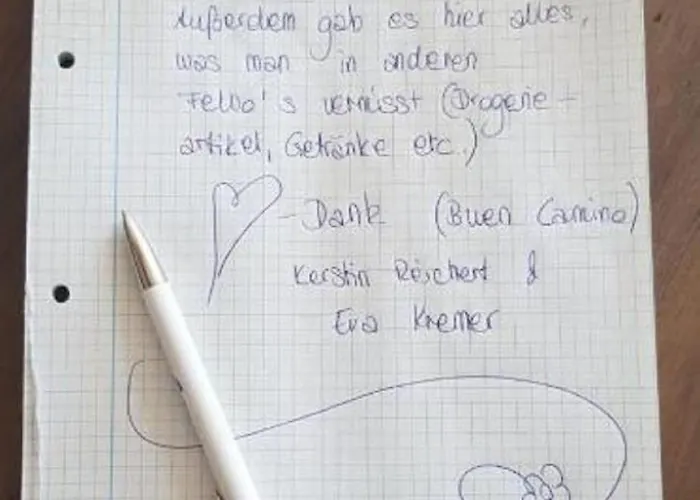 Außerdem gab es hier alles,
was man in anderen
FeWo's vermisst (Drogerie-
artikel, Getränke etc.)
- Dank (Buen Camino)
Kerstin Reichert &
Eva Kremer